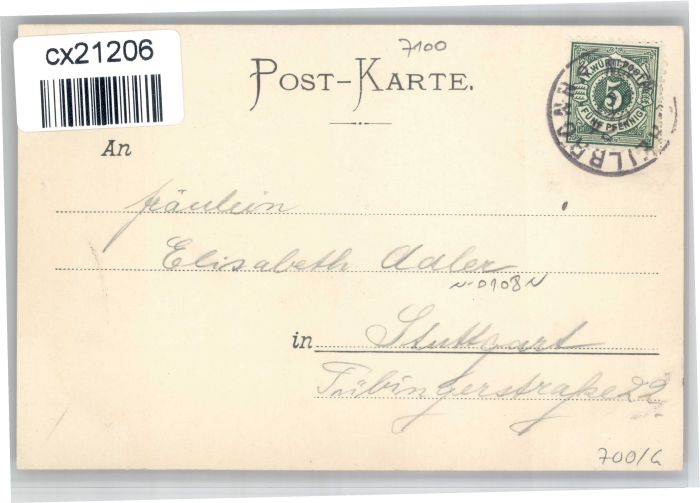 cx21206
7100
POST-KARTE.
K. WÜRTT. POST
5
FÜNF PFENNIG
HEILBRONN
An
Fräulein
Elisabeth Adler
N-0108N
in Stuttgart
Tübingerstraße 22
700/G